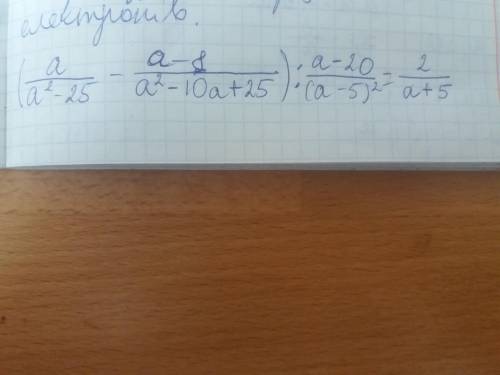 електронів.
(a/(a²-25) - (a-8)/(a²-10a+25)) : (a-20)/(a-5)² = 2/(a+5)